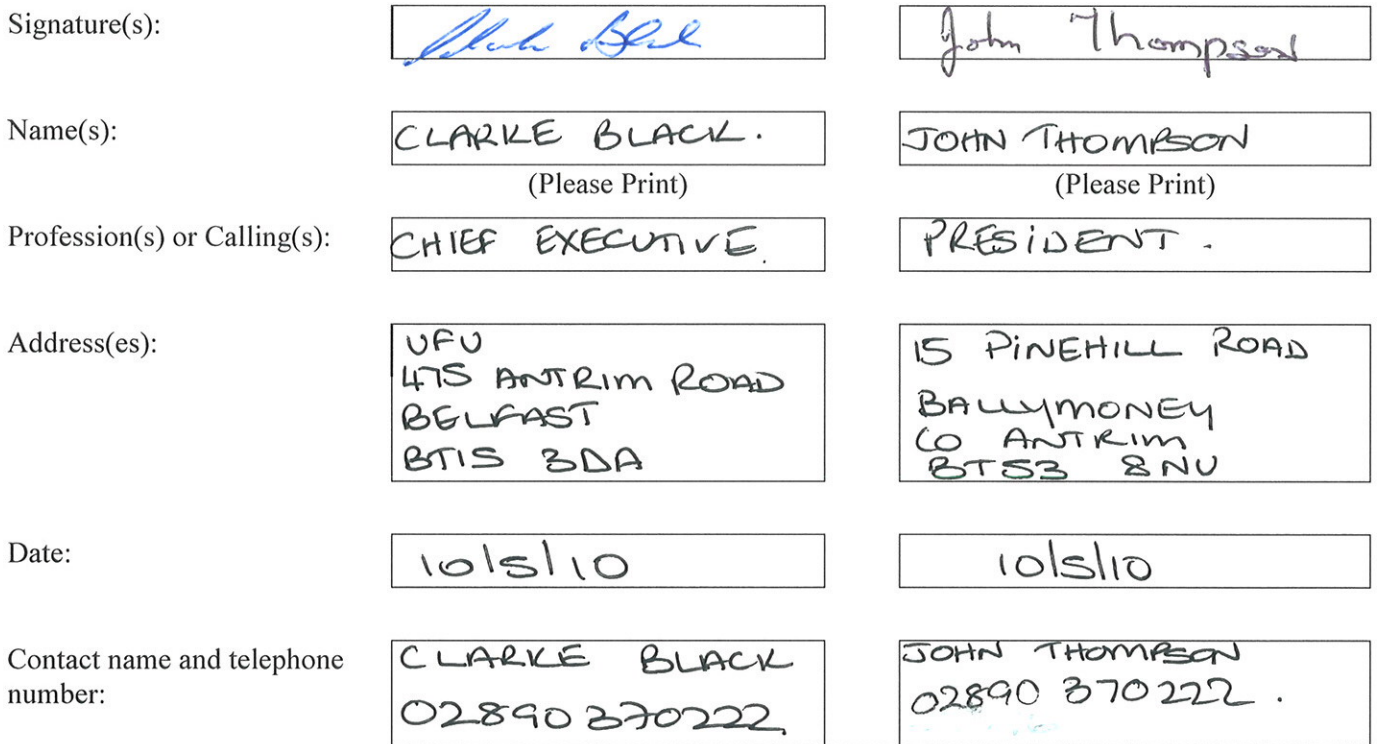 Signature(s):
John Thompson
Name(s):
CLARKE BLACK.
JOHN THOMPSON
(Please Print)
(Please Print)
Profession(s) or Calling(s):
CHIEF EXECUTIVE.
PRESIDENT.
Address(es):
UFU
475 ANTRIM ROAD
BELFAST
BT15 3DA
15 PINEHILL ROAD
BALLYMONEY
CO ANTRIM
BT53 8NU
Date:
10/5/10
10/5/10
Contact name and telephone
number:
CLARKE BLACK
02890 370222
JOHN THOMPSON
02890 370222.